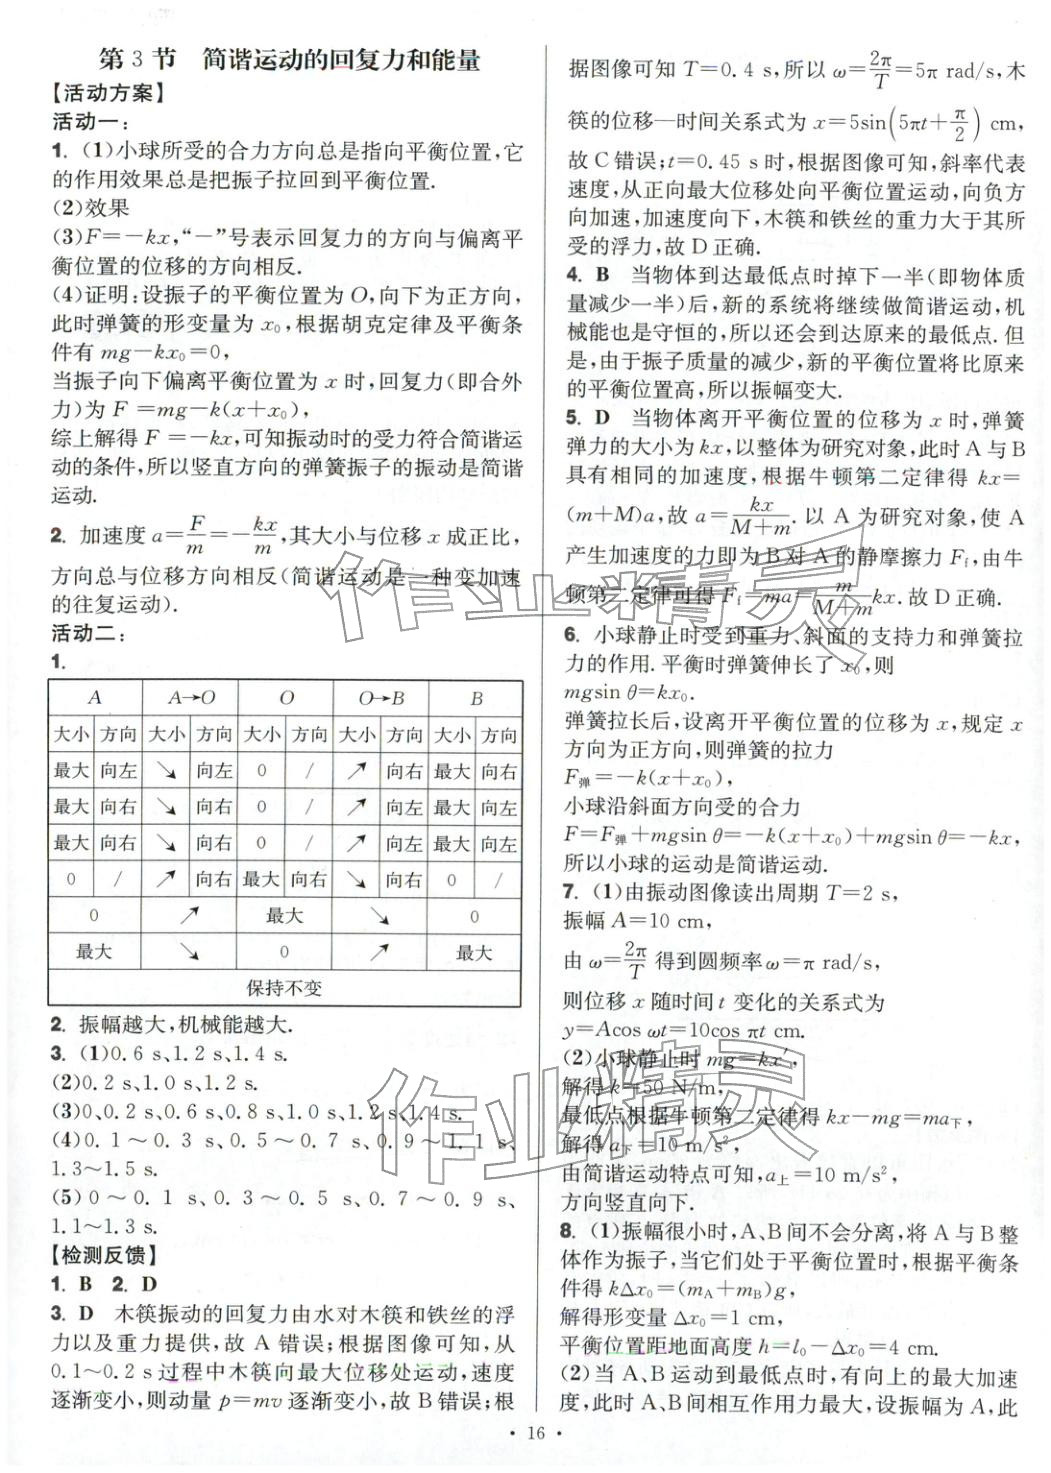 第 3 节　简谐运动的回复力和能量
【活动方案】
活动一:
1. (1)小球所受的合力方向总是指向平衡位置,它
的作用效果总是把振子拉回到平衡位置.
(2)效果
(3)F=-kx,“-”号表示回复力的方向与偏离平
衡位置的位移的方向相反.
(4)证明:设振子的平衡位置为 O,向下为正方向,
此时弹簧的形变量为 x₀,根据胡克定律及平衡条
件有 mg-kx₀=0,
当振子向下偏离平衡位置为 x 时,回复力(即合外
力)为 F =mg-k(x+x₀),
综上解得 F =-kx,可知振动时的受力符合简谐运
动的条件,所以竖直方向的弹簧振子的振动是简谐
运动.
2. 加速度 a=F/m=-kx/m,其大小与位移 x 成正比,
方向总与位移方向相反(简谐运动是一种变加速
的往复运动).
活动二:
1.
A A→O O O→B B
大小 方向 大小 方向 大小 方向 大小 方向 大小 方向
最大 向左 ↘ 向左 0 / ↗ 向右 最大 向右
最大 向右 ↘ 向右 0 / ↗ 向左 最大 向左
最大 向右 ↘ 向右 0 / ↗ 向左 最大 向左
0 / ↗ 向右 最大 向右 ↘ 向右 0 /
0 ↗ 最大 ↘ 0
最大 ↘ 0 ↗ 最大
保持不变
2. 振幅越大,机械能越大.
3. (1)0.6 s、1.2 s、1.4 s.
(2)0.2 s、1.0 s、1.2 s.
(3)0、0.2 s、0.6 s、0.8 s、1.0 s、1.2 s、1.4 s.
(4)0.1～0.3 s、0.5～0.7 s、0.9～1.1 s、
1.3～1.5 s.
(5)0～0.1 s、0.3～0.5 s、0.7～0.9 s、
1.1～1.3 s.
【检测反馈】
1. B 2. D
3. D 木筷振动的回复力由水对木筷和铁丝的浮
力以及重力提供,故 A 错误;根据图像可知,从
0.1～0.2 s过程中木筷向最大位移处运动,速度
逐渐变小,则动量 p=mv 逐渐变小,故 B 错误;根
据图像可知 T=0.4 s,所以 ω=2π/T=5π rad/s,木
筷的位移—时间关系式为 x=5sin(5πt+π/2) cm,
故 C 错误;t=0.45 s 时,根据图像可知,斜率代表
速度,从正向最大位移处向平衡位置运动,向负方
向加速,加速度向下,木筷和铁丝的重力大于其所
受的浮力,故 D 正确.
4. B 当物体到达最低点时掉下一半(即物体质
量减少一半)后,新的系统将继续做简谐运动,机
械能也是守恒的,所以还会到达原来的最低点.但
是,由于振子质量的减少,新的平衡位置将比原来
的平衡位置高,所以振幅变大.
5. D 当物体离开平衡位置的位移为 x 时,弹簧
弹力的大小为 kx,以整体为研究对象,此时 A 与 B
具有相同的加速度,根据牛顿第二定律得 kx=
(m+M)a,故 a=kx/(M+m).以 A 为研究对象,使 A
产生加速度的力即为 B 对 A 的静摩擦力 F_f,由牛
顿第二定律可得 F_f=ma=m/(M+m)kx.故 D 正确.
6. 小球静止时受到重力、斜面的支持力和弹簧拉
力的作用.平衡时弹簧伸长了 x₀,则
mgsin θ=kx₀.
弹簧拉长后,设离开平衡位置的位移为 x,规定 x
方向为正方向,则弹簧的拉力
F弹=-k(x+x₀),
小球沿斜面方向受的合力
F=F弹+mgsin θ=-k(x+x₀)+mgsin θ=-kx,
所以小球的运动是简谐运动.
7. (1)由振动图像读出周期 T=2 s,
振幅 A=10 cm,
由 ω=2π/T 得到圆频率 ω=π rad/s,
则位移 x 随时间 t 变化的关系式为
y=Acos ωt=10cos πt cm.
(2)小球静止时 mg=kx′,
解得 k=50 N/m,
最低点根据牛顿第二定律得 kx-mg=ma下,
解得 a下=10 m/s²,
由简谐运动特点可知,a上=10 m/s²,
方向竖直向下.
8. (1)振幅很小时,A、B间不会分离,将 A 与 B 整
体作为振子,当它们处于平衡位置时,根据平衡条
件得 kΔx₀=(m_A+m_B)g,
解得形变量 Δx₀=1 cm,
平衡位置距地面高度 h=l₀-Δx₀=4 cm.
(2)当 A、B 运动到最低点时,有向上的最大加速
度,此时 A、B 间相互作用力最大,设振幅为 A,此
· 16 ·
作业精灵
作业精灵